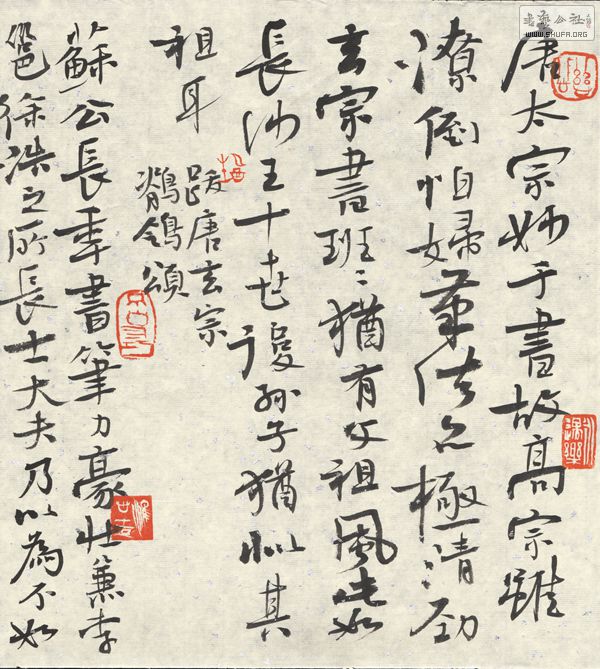 唐太宗妙于書故高宗雖
潦倒怕婦筆法亦極清勁
玄宗書班〻猶有父祖風此如
長沙王十世後孫子猶似其
祖耳
跋唐玄宗
鶺鴒頌
蘇公長年書筆力豪壯兼李
邕徐浩之所長士大夫乃以為不如
書藝公社
WWW.SHUFA.ORG